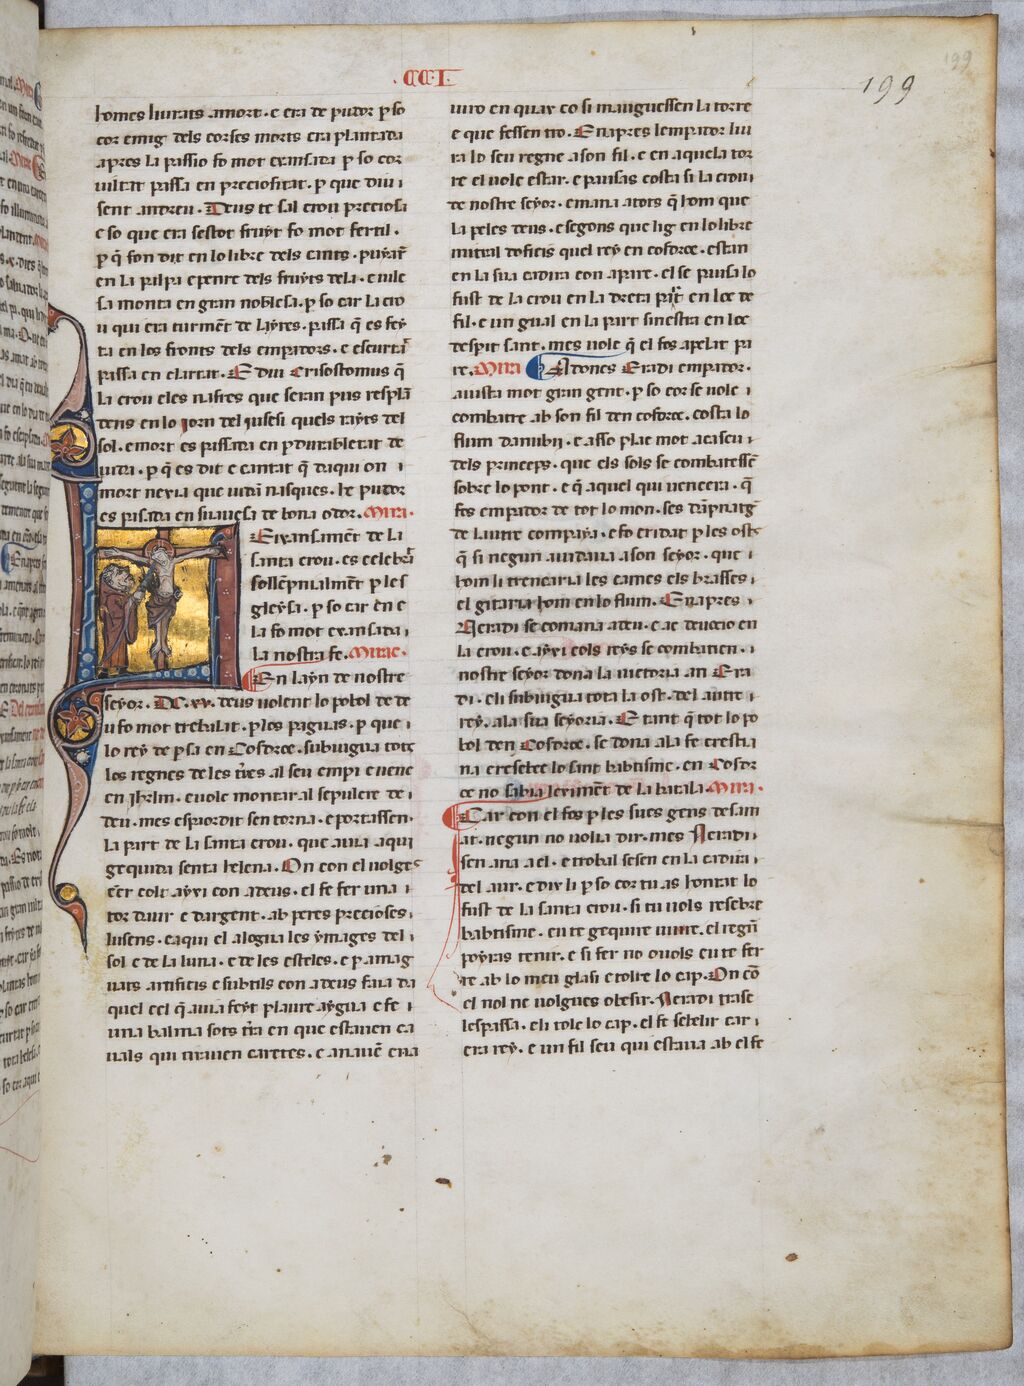 CCI.
199
homes liurats a mort. e era de pudor p so
cor emig dels corses morts era plantada
apres la passio fo mot exausada p so cor
uiltat passa en preciositat. p que diu
sent andreu. Deus te sal crou preciosa
e so que era sestot fruyt fo mot fertil.
p q̄ fon dit en lo libre dels cants. puyare
en la palpa e penre dels fruyts dela. e uile
sa monta en gran noblesa. p so car la cro
u qui era turmēt de layres. passa q̄ es fey
ta en los fronts dels empadors. e escurta
passa en clartat. E diu Crisostomus q̄
la crou e les nafres que seran pus resplā
dens en lo jorn del iusesi quels rayts del
sol. e mort es passada en pdurabletat de
uida. p q̄ es dit e cantat q̄ daqui on
mort nexia que uida nasques. he pudor
es passada en suauesa de bona odor. Mira.
Exausamēt de la
santa crou. es celebra
sollempnialmēt p les
gleysa. p so car en e
la fo mot exausada
la nostra fe. Mirac.
En layn de nostre
seyor. DC. xv. deus uolent lo pobol de de
u fo mot trebalat. p los pagans. p que
lo rey de psa en Cosdroe. subiuga tots
los regnes de les tr̄es al seu empi e uenc
en Jhrlm. e uolc montar al sepulcre de
deu. mes espaordit sen torna. e portassen
la part de la santa crou. que auia aqui
gequida senta helena. On con el uolges
eēr colt axi con a deus. el fe fer una
tor daur e dargent. ab peres precioses
lusens. e aqui el aloga les ymages del
sol e de la luna. e de les esteles. e p amag
uats artificis e subtils con a deus faia da
quel cel q̄ auia feyt ploure aygua e fe
una balma sots tr̄a en que estauen ca
uals qui tirauen caretes. e anauē en a
uiro en quax co si mauguessen la torre
e que fessen tro. E napres lempador liu
ra lo seu regne a son fil. e en aquela tor
re el uolc estar. e pausas costa si la crou
de nostre seyor. e mana a tots q̄ hom que
la peles deus. e segons que lig en lo libre
mitral doficis quel rey en cosdroe. estan
en la sua cadira con a pare. el se pausa lo
fust de la crou en la dreta part en loc de
fil. e un gual en la part sinestra en loc
despit sant. mes uolc q̄ el fos apelat pa
re. Mira Adones Eracli empador.
aiusta mot gran gent. p so cor se uolc
combatre ab son fil den cosdroe. costa lo
flum danubij. e asso plac mot a cascu
dels princeps. que els sols se combatessē
sobre lo pont. e q̄ aquel qui uencera. q̄
fos empador de tot lo mon. ses dāpnatg
de lautre companya. e fo cridat p les osts
q̄ si negun aiudaua a son seyor. que
hom li trencaria les cames els brasses
el gitaria hom en lo flum. E napres
Aeracli se comana a deu. e ac deuocio en
la crou. e axi cols reys se combatien.
nostre seyor dona la uictoria an Era
cli. e li subiuga tota la ost. del autre
rey. a la sua seyoria. E tant q̄ tot lo po
bol den Cosdroe. se dona a la fe crestia
na e resebee lo sant babtisme. en Cosdr
oe no sabia leximēt de la batala. Mira.
Car con el fos p les sues gens desam
at. negun no uolia dir. mes Aeracli
sen ana a el. e trobal sesen en la cadira
del aur. e dix li p so cor tu as honrat lo
fust de la santa crou. si tu uols resebre
babtisme. eu te gequire uiure. el regn̄
poyras tenir. e si fer no o uols eu te fer
re ab lo meu glasi e tolre lo cap. On cō
el nol ne uolgues obesir. Aeracli trasc
lespassa. e li tolc lo cap. el fe sebelir car
era rey. e un fil seu qui estaua ab el fe